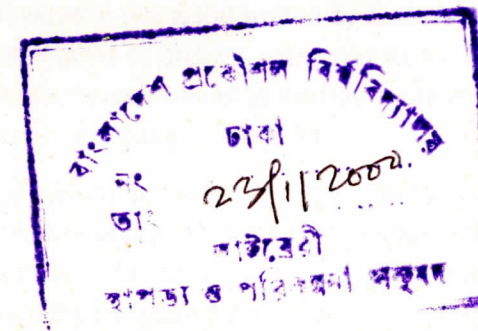 বাংলাদেশ প্রকৌশল বিশ্ববিদ্যালয়
ঢাকা
নং
তাং 23/1/2000.
লাইব্রেরী
স্থাপত্য ও পরিকল্পনা অনুষদ